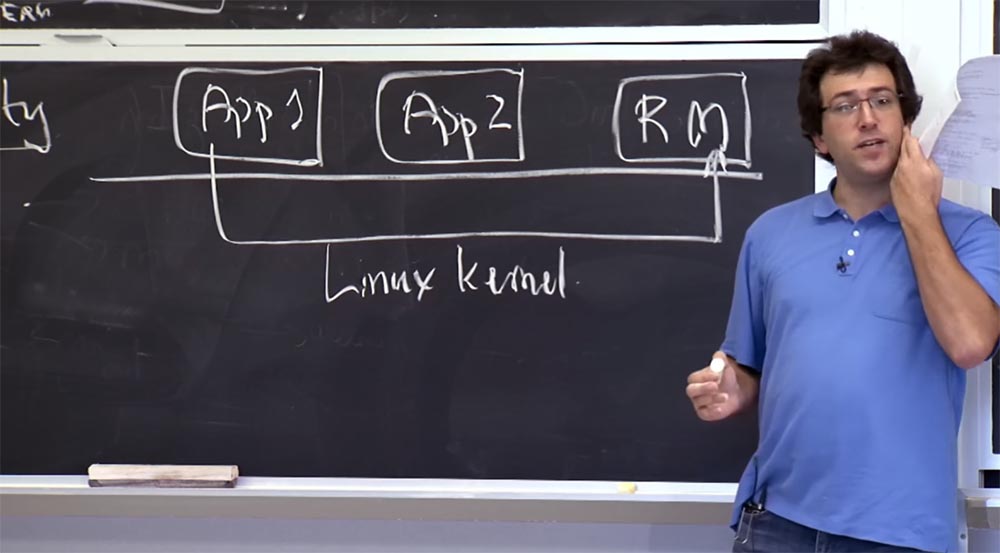 ERN
ty
App 1
App 2
RM
Linux kernel